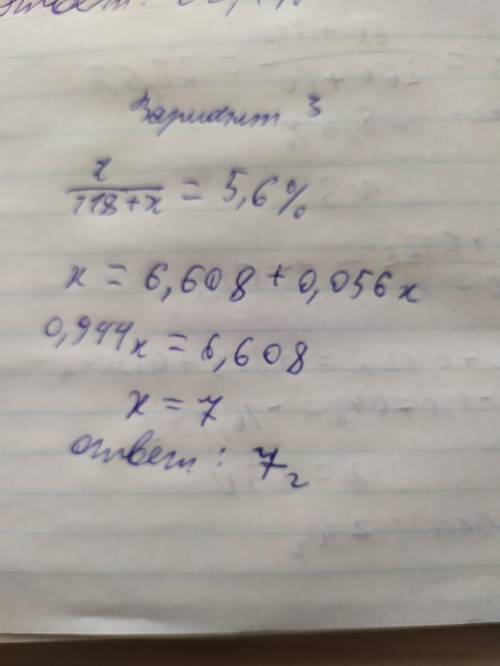 ответ:
Вариант 3
x/(118+x) = 5,6%
x = 6,608 + 0,056x
0,944x = 6,608
x = 7
ответ: 7г